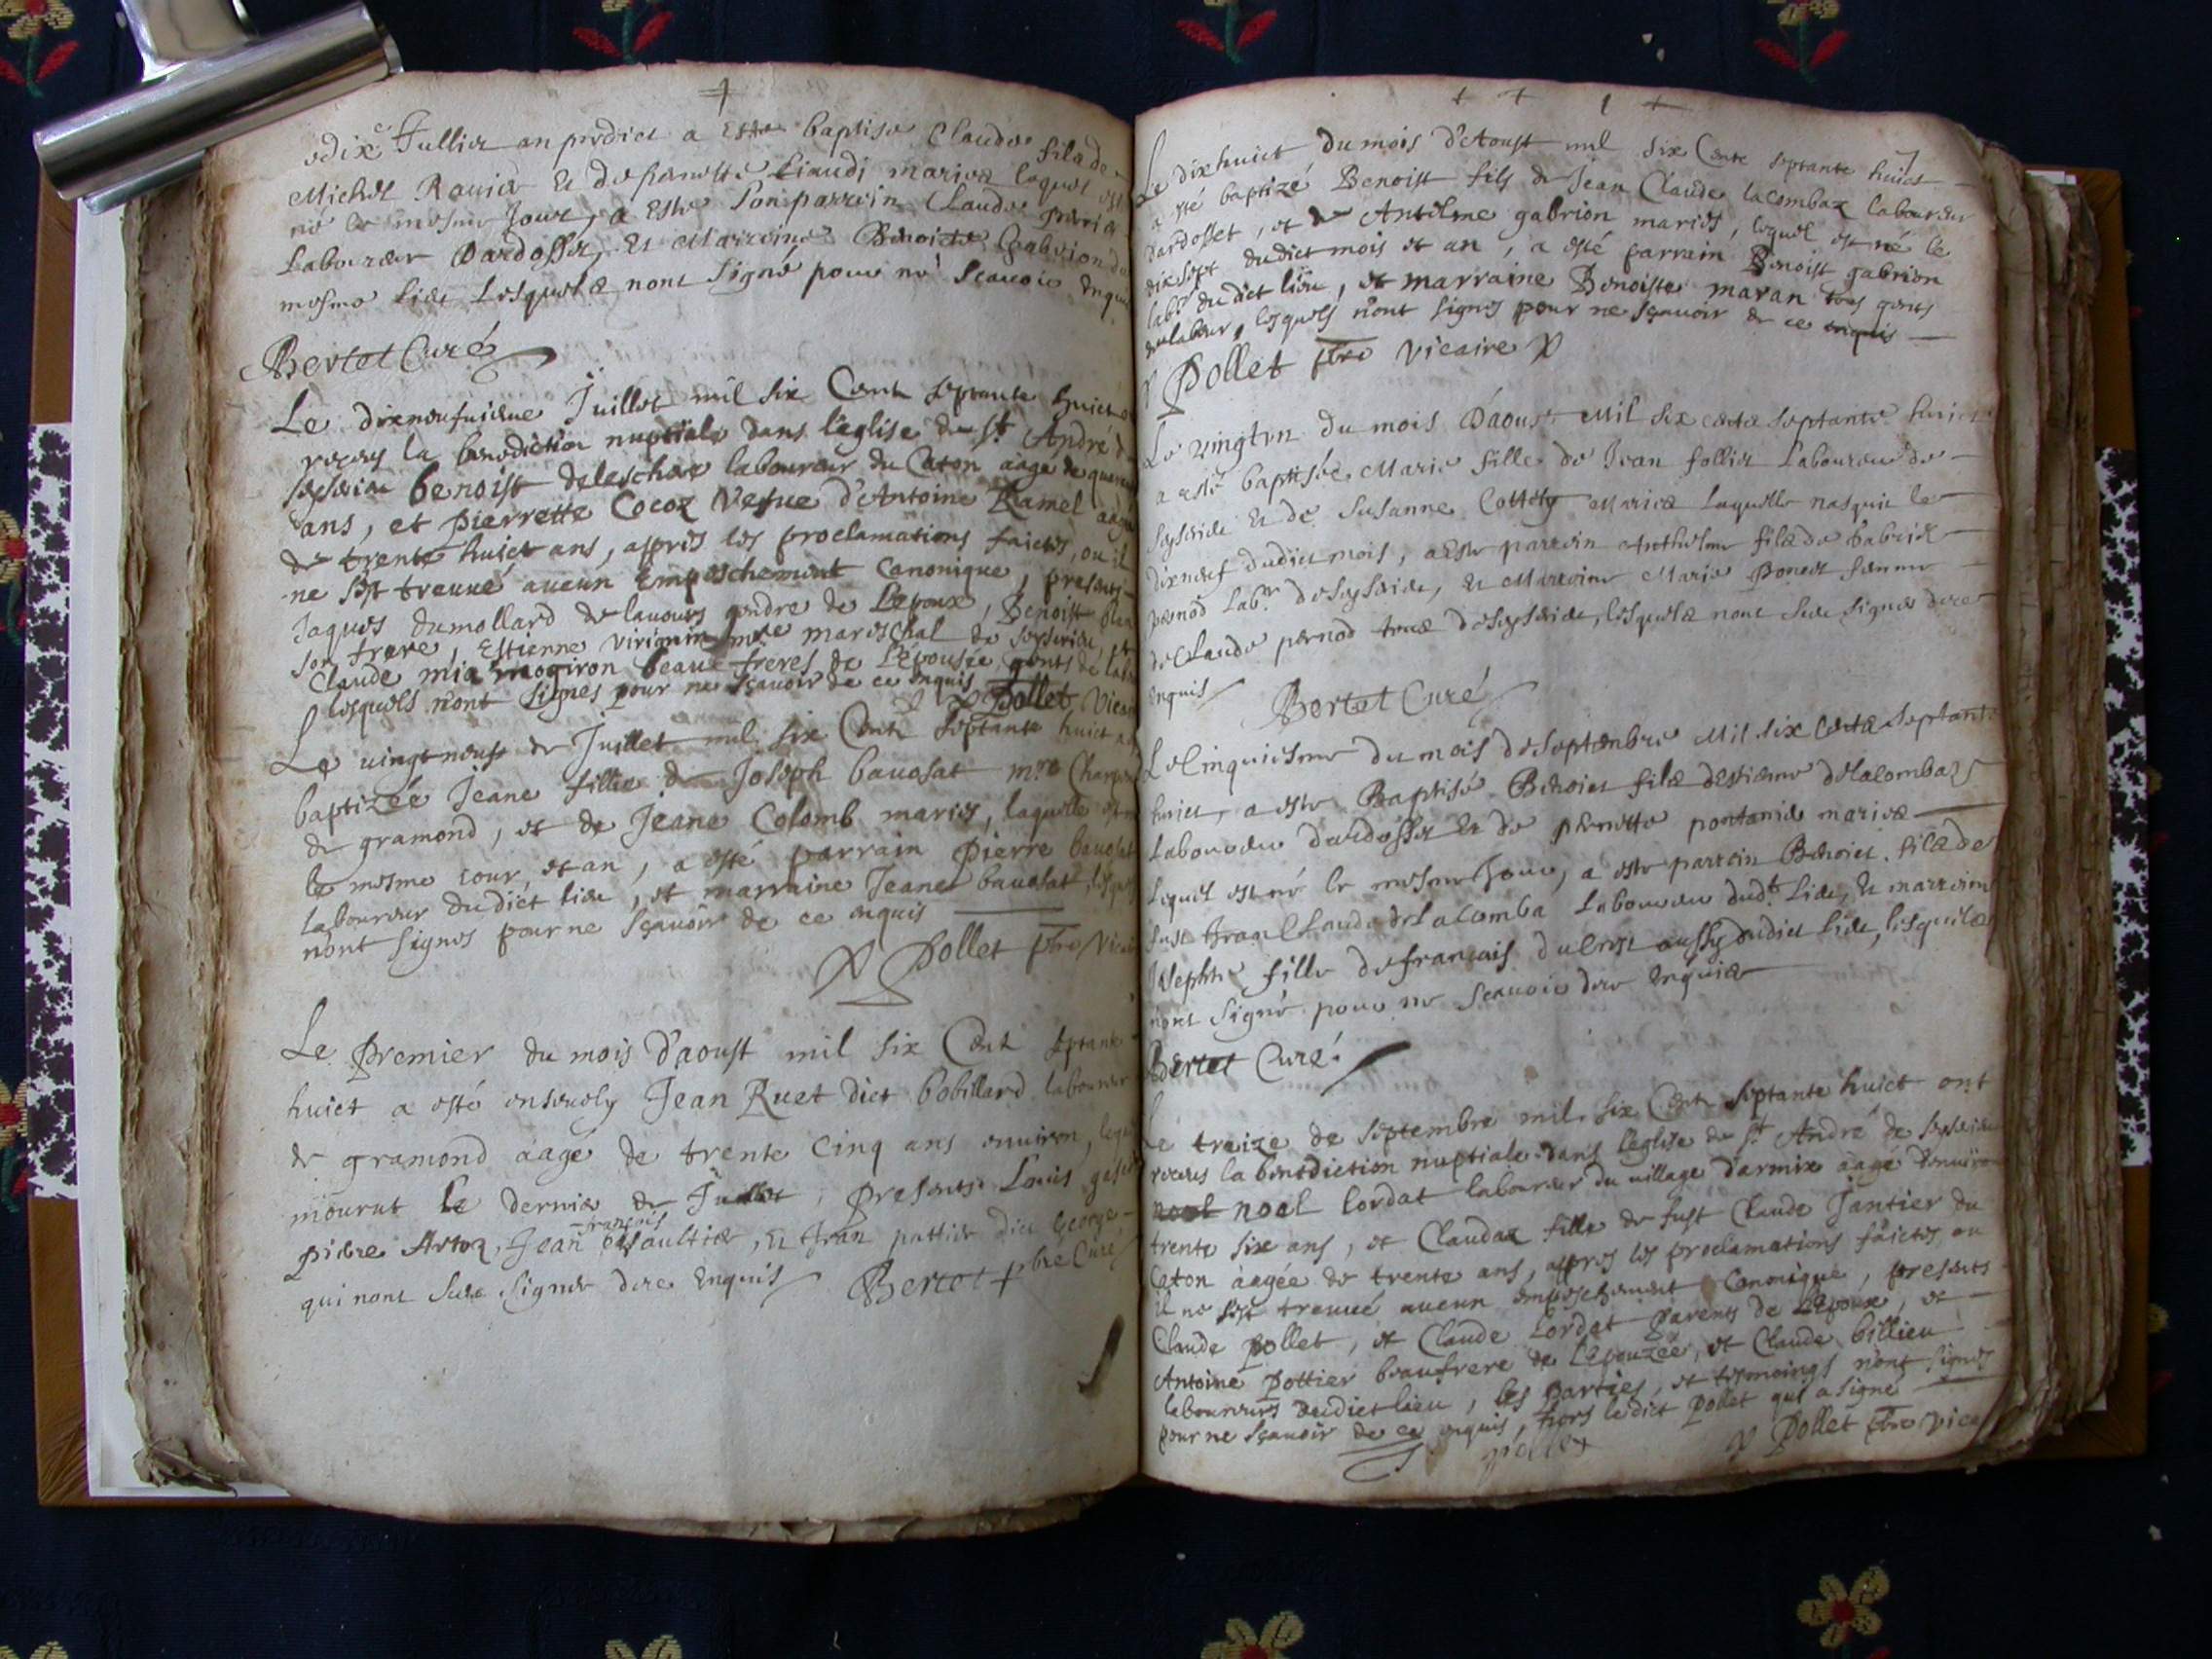 dixe Jullier an predict a Este baptise Claude fils de
Michel Ravier et de pernette Liaudi maries lequel est
né le mesme Jour, a Este Son parrein Claude
Laboureur Dardosset, Et Marreine Benoiste Gabrion du
mesme Lieu Lesquels nont Signé pour ne Scavoir Enquis
Bertet Curé
Le dixneufuieme Juillet mil six Cent septante huict
receu la benediction nuptiale dans leglise de St André d
benoist deleschaz laboureur du Caton aage de quarente
ans, et pierrette Cocoz Vefue d'Antoine Ramel aagée
de trente huict ans, appres les proclamations faictes, ou il
ne sest treuué aucun Empeschement Canonique, presents
Jaques dumollard de lauours gendre de Lepoux, Benoist
son frere, Estienne Virignin mre mareschal de seyserieu, et
Claude mia mogiron beaux freres de Lépousée, gents de labeur
lesquels n'ont signés pour ne sçauoir de ce enquis Pollet Vicaire
Le vingt neuf de Juillet mil six Cent septante huict a
baptizée Jeane fillie de Joseph bauosat mre Charpentier
de gramond, et de Jeane Colomb maries, laquelle est
le mesme iour, et an, a esté parrain Pierre bauosat
laboureur dudict lieu, et marraine Jeane bauosat, lesquels
nont signés pour ne sçauoir de ce enquis
Pollet pbre Vicaire
Le Premier du mois d'aoust mil six Cent septante
huict a esté enseuely Jean Ruet dict bobillard laboureur
de gramond aagé de trente Cinq ans enuiron, lequel
mourut le dernier de Juillet, presents Louis
pierre Artoz, Jean françois, Et Jean pottier dict George
qui nont Sceu Signer dece Enquis Bertet pbre Curé
Le dixhuict du mois d'Aoust mil six Cents septante huict
a esté baptizé Benoist fils de Jean Claude lacombaz laboureur
dardosset, et de Antelme gabrion mariés, lequel est né le
dixsept dudict mois et an, a esté parrain Benoist gabrion
labr du dict lieu, et marraine Benoiste maran tous gents
de labeur, lesquels n'ont signes pour ne sçauoir de ce enquis
Pollet pbre Vicaire
Le vingtvn du mois D'aoust Mil six cents septante huict
a esté baptisée Marie fille de Jean follier Laboureur de
Seyserieu et de Susanne Maries Laquelle nasquit le
dixneuf dudict mois, a Este parrein Anthelme fils de
pernod Labr deseyserieu, Et Marreine Marie Bonet femme
de Claude pernod tous deseyserieu, lesquels nont Sceu Signer dece
enquis Bertet Curé
Le Cinquiesme du mois de Septembre Mil six cents septante
huict, a este Baptisé Benoict fils destienne delacombaz
Laboureur dardosset Et de pernette pontanier maries
Lequel est né le mesme Jour, a este parrein Benoict fils de
Jean Claude de Lacomba Laboureur dudt Lieu, Et marreine
Josephte fille de francois du Crest aussy dudict Lieu, lesquels
nont Signé pour ne Scauoir dece Enquis
Bertet Curé
Le treize de septembre mil six Cent septante huict ont
receus la benediction nuptiale dans leglise de St André de seyserieu
noel noel lordat laboureur du village d'armix aagé denuiron
trente six ans, et Claudaz fille de fust Claude Jantier du
Caton aagée de trente ans, appres les proclamations faictes, ou
il ne sest treuué aucun empeschement Canonique, presents
Claude pollet, et Claude Lordat parents de Lepoux, et
Antoine Pottier beaufrere de Lépouzée, et Claude billieu
laboureurs dudict lieu, les parties, et tesmoings n'ont signes
pour ne sçauoir de ce enquis, hors ledict pollet qui a signé
pollet Pollet pbre vicaire